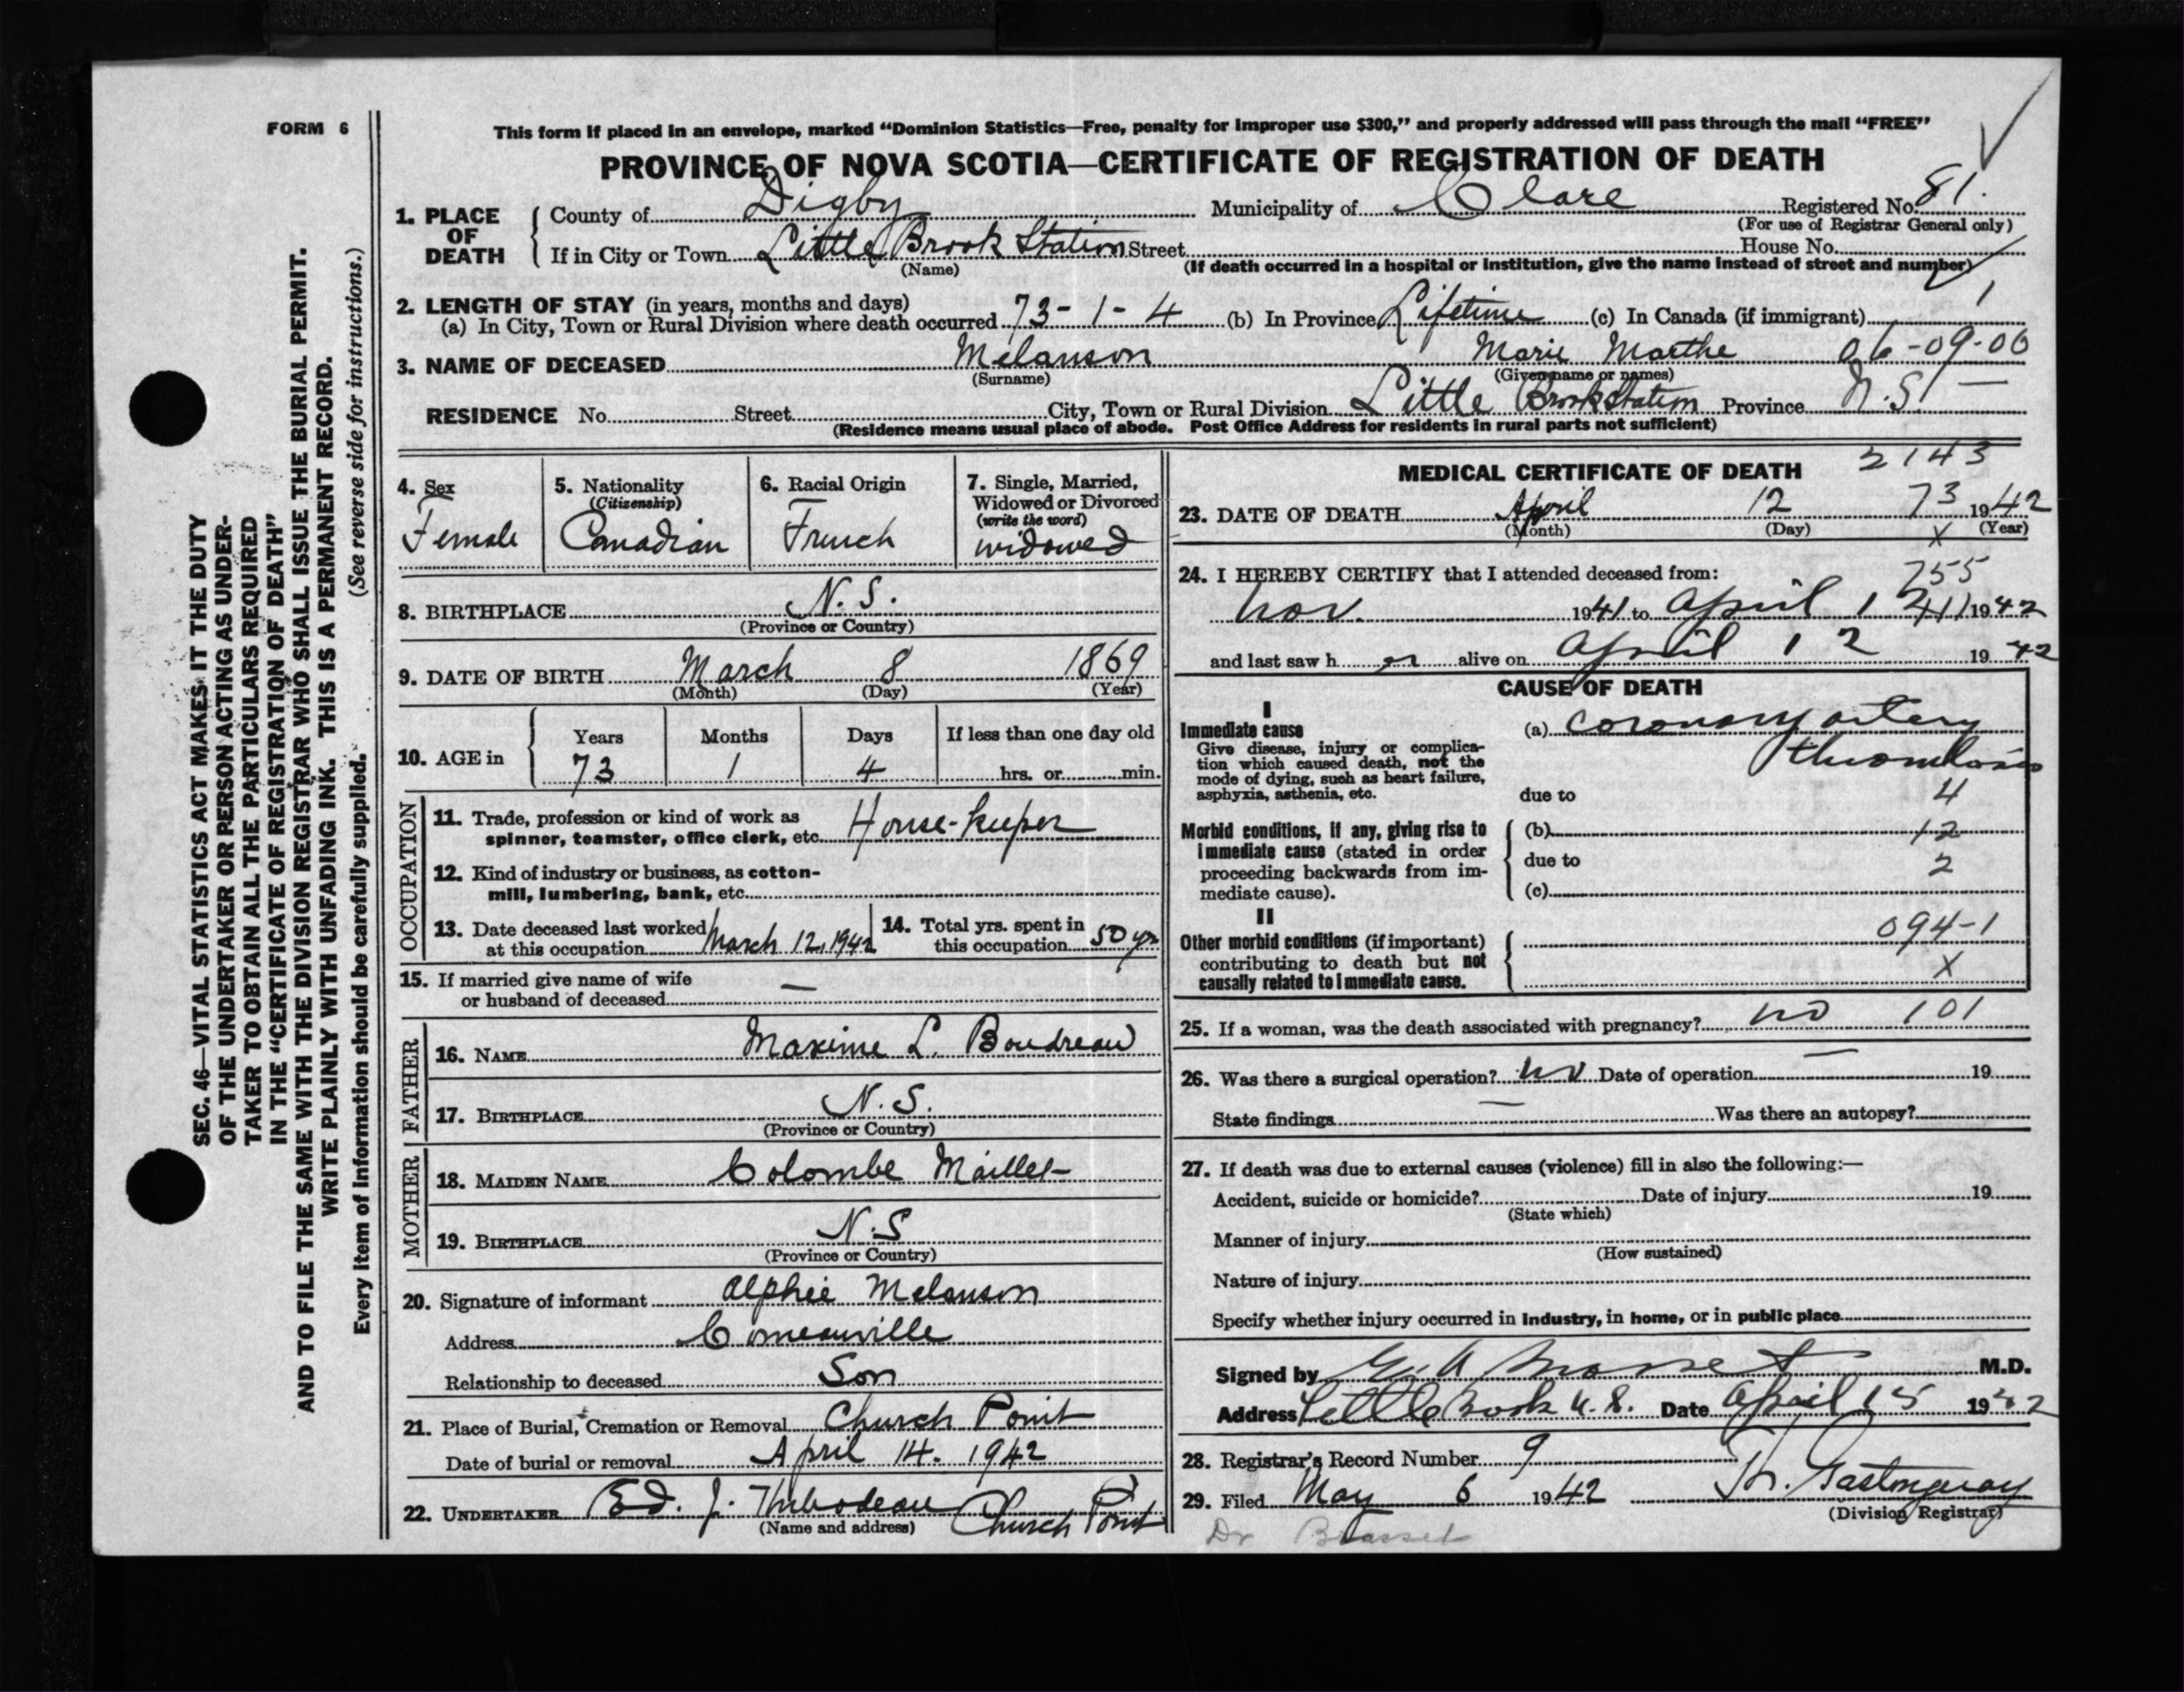 FORM 6
This form if placed in an envelope, marked "Dominion Statistics—Free, penalty for improper use $300," and properly addressed will pass through the mail "FREE"
PROVINCE OF NOVA SCOTIA—CERTIFICATE OF REGISTRATION OF DEATH
1. PLACE OF DEATH
County of Digby Municipality of Clare Registered No. 81.
(For use of Registrar General only)
If in City or Town Little Brook Station Street House No.
(Name) (If death occurred in a hospital or institution, give the name instead of street and number)
2. LENGTH OF STAY (in years, months and days)
(a) In City, Town or Rural Division where death occurred 73-1-4 (b) In Province Lifetime (c) In Canada (if immigrant)
3. NAME OF DECEASED Melanson Marie Marthe 06-09-00
(Surname) (Given name or names)
RESIDENCE No. Street City, Town or Rural Division Little Brook Station Province N.S.
(Residence means usual place of abode. Post Office Address for residents in rural parts not sufficient)
4. Sex
Female
5. Nationality
(Citizenship)
Canadian
6. Racial Origin
French
7. Single, Married,
Widowed or Divorced
(write the word)
widowed
8. BIRTHPLACE N.S.
(Province or Country)
9. DATE OF BIRTH March 8 1869
(Month) (Day) (Year)
10. AGE in
Years Months Days If less than one day old
73 1 4 hrs. or min.
OCCUPATION
11. Trade, profession or kind of work as
spinner, teamster, office clerk, etc. House-keeper
12. Kind of industry or business, as cotton-
mill, lumbering, bank, etc.
13. Date deceased last worked
at this occupation March 12, 1942
14. Total yrs. spent in
this occupation 50 yrs
15. If married give name of wife
or husband of deceased —
FATHER
16. NAME Maxime L. Boudreau
17. BIRTHPLACE N.S.
(Province or Country)
MOTHER
18. MAIDEN NAME Colombe Maillet
19. BIRTHPLACE N.S
(Province or Country)
20. Signature of informant Alphée Melanson
Address Comeauville
Relationship to deceased Son
21. Place of Burial, Cremation or Removal Church Point
Date of burial or removal April 14. 1942
22. UNDERTAKER Ed. J. Thibodeau Church Point
(Name and address)
MEDICAL CERTIFICATE OF DEATH 2143
23. DATE OF DEATH April 12 73 1942
(Month) (Day) X (Year)
24. I HEREBY CERTIFY that I attended deceased from: 755
Nov. 1941 to April 12 1942
and last saw h er alive on April 12 19 42
CAUSE OF DEATH
I
Immediate cause
Give disease, injury or complica-
tion which caused death, not the
mode of dying, such as heart failure,
asphyxia, asthenia, etc.
(a) coronary artery
thrombosis
due to 4
Morbid conditions, if any, giving rise to
immediate cause (stated in order
proceeding backwards from im-
mediate cause).
(b) 12
due to 2
(c)
II
Other morbid conditions (if important)
contributing to death but not
causally related to immediate cause.
094-1
X
25. If a woman, was the death associated with pregnancy? no 101
26. Was there a surgical operation? no Date of operation — 19
State findings — Was there an autopsy?
27. If death was due to external causes (violence) fill in also the following:—
Accident, suicide or homicide? Date of injury 19
(State which)
Manner of injury
(How sustained)
Nature of injury
Specify whether injury occurred in industry, in home, or in public place
Signed by M.D.
Address Little Brook N.S. Date April 15 1942
28. Registrar's Record Number 9
29. Filed May 6 1942
(Division Registrar)
Dr Brasset
SEC. 46—VITAL STATISTICS ACT MAKES IT THE DUTY
OF THE UNDERTAKER OR PERSON ACTING AS UNDER-
TAKER TO OBTAIN ALL THE PARTICULARS REQUIRED
IN THE "CERTIFICATE OF REGISTRATION OF DEATH"
AND TO FILE THE SAME WITH THE DIVISION REGISTRAR WHO SHALL ISSUE THE BURIAL PERMIT.
WRITE PLAINLY WITH UNFADING INK. THIS IS A PERMANENT RECORD.
Every item of information should be carefully supplied. (See reverse side for instructions.)